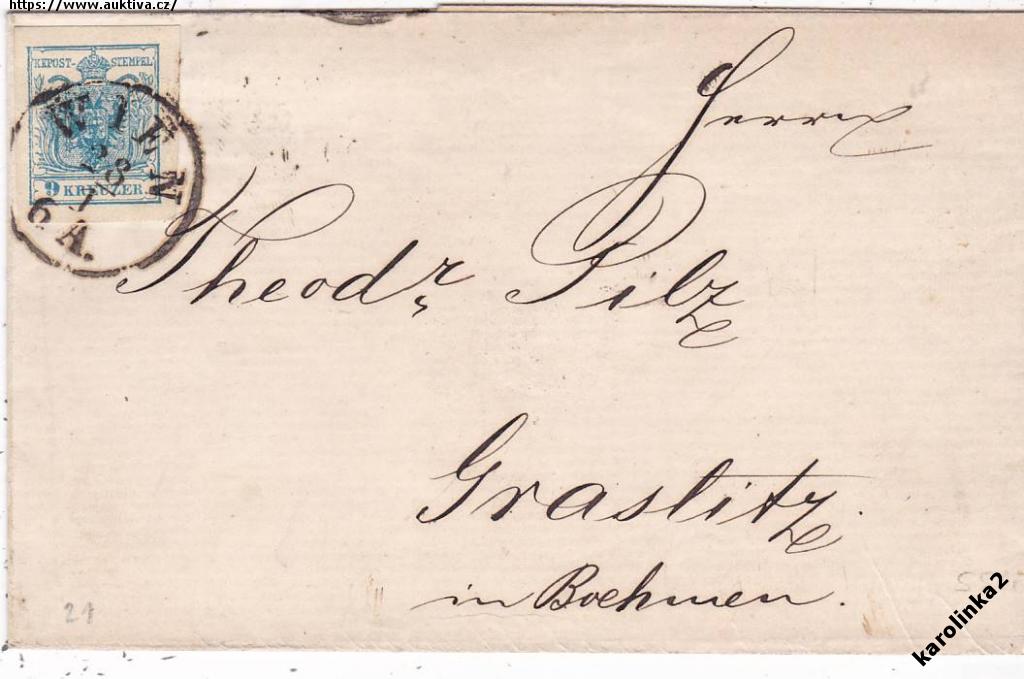 https://www.auktiva.cz/
KKPOST-STEMPEL
9 KREUZER.
WIEN
28/1
6 A.
Herrn
Theodr Pilz
Graslitz
in Boehmen.
21
karolinka2